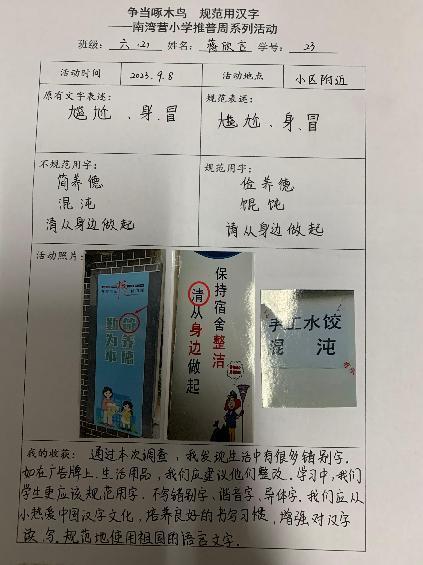 争当啄木鸟 规范用汉字
——南湾营小学推普周系列活动
班级：六（2） 姓名： 学号：23
活动时间 2023.9.8 活动地点 小区附近
原有文字表述： 规范表述：
尴尬、身、冒 尴尬、身、冒
不规范用字： 规范用字：
简养德 俭养德
混沌 馄饨
清从身边做起 请从身边做起
活动照片：
勤为本
简养德
保持宿舍整洁
清从身边做起
手工水饺
混沌
我的收获：通过本次调查，我发现生活中有很多错别字。
如在广告牌上、生活用品，我们应建议他们整改。学习中，我们
学生更应该规范用字，不写错别字、谐音字、异体字。我们应从
小热爱中国汉字文化，培养良好的书写习惯，增强对汉字
读、写。规范地使用祖国的语言文字。